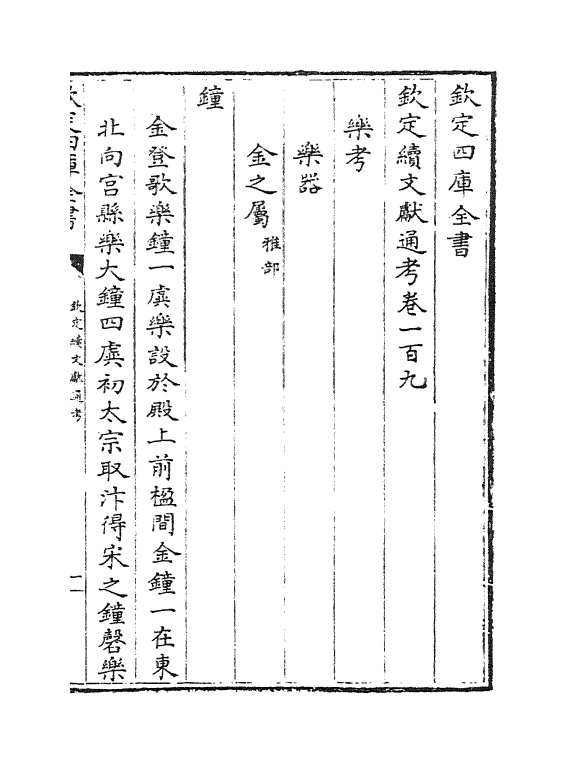 欽定四庫全書
欽定續文獻通考卷一百九
樂考
樂器
金之屬 雅部
鐘
金登歌樂鐘一虡樂設於殿上前楹間金鐘一在東
北向宫縣樂大鐘四虡初太宗取汴得宋之鐘磬樂
欽定四庫全書 欽定續文獻通考 一